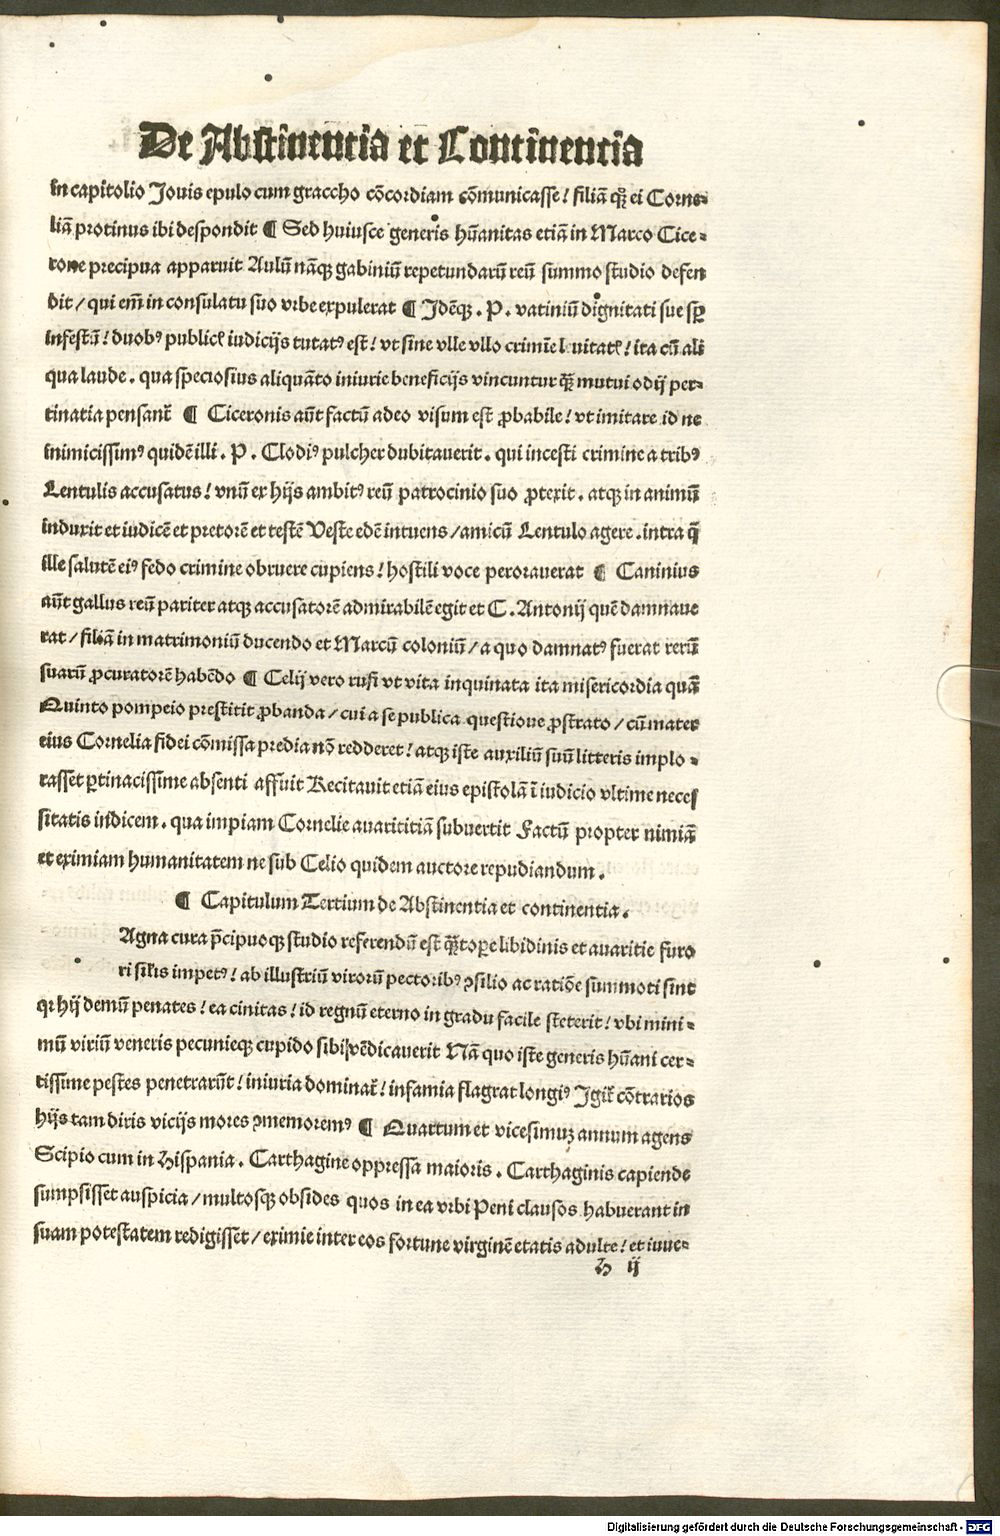 De Abstinentia et Continentia
in capitolio Jouis epulo cum graccho cōcordiam cōmunicasse! filiā qꝫ ei Corne-
liā protinus ibi despondit ¶ Sed huiusce generis hūanitas etiā in Marco Cice-
rone precipua apparuit Aulū nāqꝫ gabiniū repetundarū reū summo studio defen
dit / qui em̄ in consulatu suo vrbe expulerat ¶ Idēqꝫ . P . vatiniū dignitati sue sꝑ
infestū! duobꝰ publicꝭ iudicijs tutatꝰ est! vt sine vlle vllo crimīe l uitatꝭ! ita cū ali
qua laude . qua speciosius aliquāto iniurie beneficijs vincuntur q̄ꝫ mutui odij per-
tinatia pensant᷑ ¶ Ciceronis aūt factū adeo visum est ꝓbabile! vt imitare id ne
inimicissimꝰ quidē illi . P . Clodiꝰ pulcher dubitauerit . qui incesti crimine a tribꝰ
Lentulis accusatus! vnū ex hijs ambitꝰ reū patrocinio suo ꝓtexit . atqꝫ in animū
induxit et iudicē et pretorē et testē Veste edē intuens / amicū Lentulo agere . intra q̄
ille salutē eiꝰ fedo crimine obruere cupiens! hostili voce perorauerat ¶ Caninius
aūt gallus reū pariter atqꝫ accusatorē admirabilē egit et C . Antonij quē damnaue
rat / filiā in matrimoniū ducendo et Marcū coloniū / a quo damnatꝰ fuerat rerū
suarū ꝓcuratorē habēdo ¶ Celij vero rufi vt vita inquinata ita misericordia quā
Quinto pompeio prestitit ꝓbanda / cui a se publica questione ꝓstrato / cū mater
eius Cornelia fidei cōmissa predia nō redderet! atqꝫ iste auxiliū suū litteris implo -
rasset ꝑtinacissime absenti affuit Recitauit etiā eius epistolā ī iudicio vltime neces
sitatis indicem . qua impiam Cornelie auarititiā subuertit Factū propter nimiā
et eximiam humanitatem ne sub Celio quidem auctore repudiandum .
¶ Capitulum Tertium de Abstinentia et continentia .
Agna cura p̄cipuoqꝫ studio referendū est q̄ꝫtoꝑe libidinis et auaritie furo
ri sil̄is impetꝰ! ab illustriū virorū pectoribꝰ ꝯsilio ac ratiōe summoti sint
qꝛ hij demū penates! ea ciuitas! id regnū eterno in gradu facile steterit! vbi mini -
mū viriū veneris pecunieqꝫ cupido sibi vēdicauerit Nā quo iste generis hūani cer-
tissime pestes penetrarūt! iniuria dominat᷑! infamia flagrat longiꝰ Igit᷑ cōtrarios
hijs tam diris vicijs mores ꝯmemoremꝰ ¶ Quartum et vicesimuꝫ annum agens
Scipio cum in hispania . Carthagine oppressa maioris . Carthaginis capiende
sumpsisset auspicia / multosqꝫ obsides quos in ea vrbi Peni clausos habuerant in
suam potestatem redigisset / eximie inter eos fortune virginē etatis adulte! et iuue-
h ij
Digitalisierung gefördert durch die Deutsche Forschungsgemeinschaft - DFG